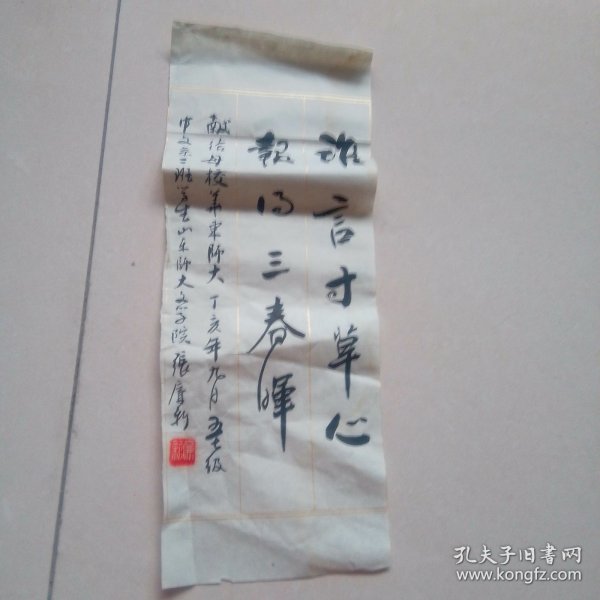 谁言寸草心
報得三春暉
献给母校华东师大 丁亥年九月 五七级
中文系二班学生山东师大文学院張
孔夫子旧書网
www.kongfz.com